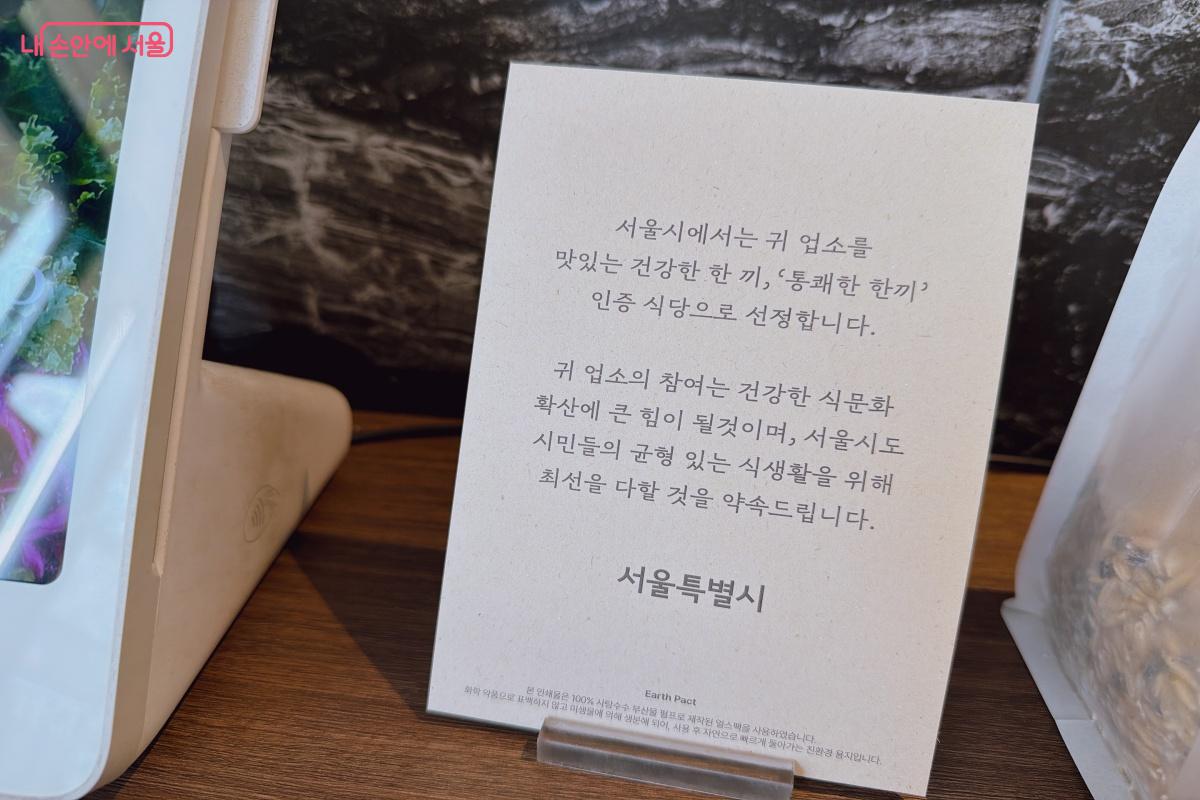 내 손안에 서울
서울시에서는 귀 업소를
맛있는 건강한 한 끼, ‘통쾌한 한끼’
인증 식당으로 선정합니다.
귀 업소의 참여는 건강한 식문화
확산에 큰 힘이 될것이며, 서울시도
시민들의 균형 있는 식생활을 위해
최선을 다할 것을 약속드립니다.
서울특별시
Earth Pact
본 인쇄물은 100% 사탕수수 부산물 펄프로 제작된 얼스팩을 사용하였습니다.
화학 약품으로 표백하지 않고 미생물에 의해 생분해 되어, 사용 후 자연으로 빠르게 돌아가는 친환경 용지입니다.